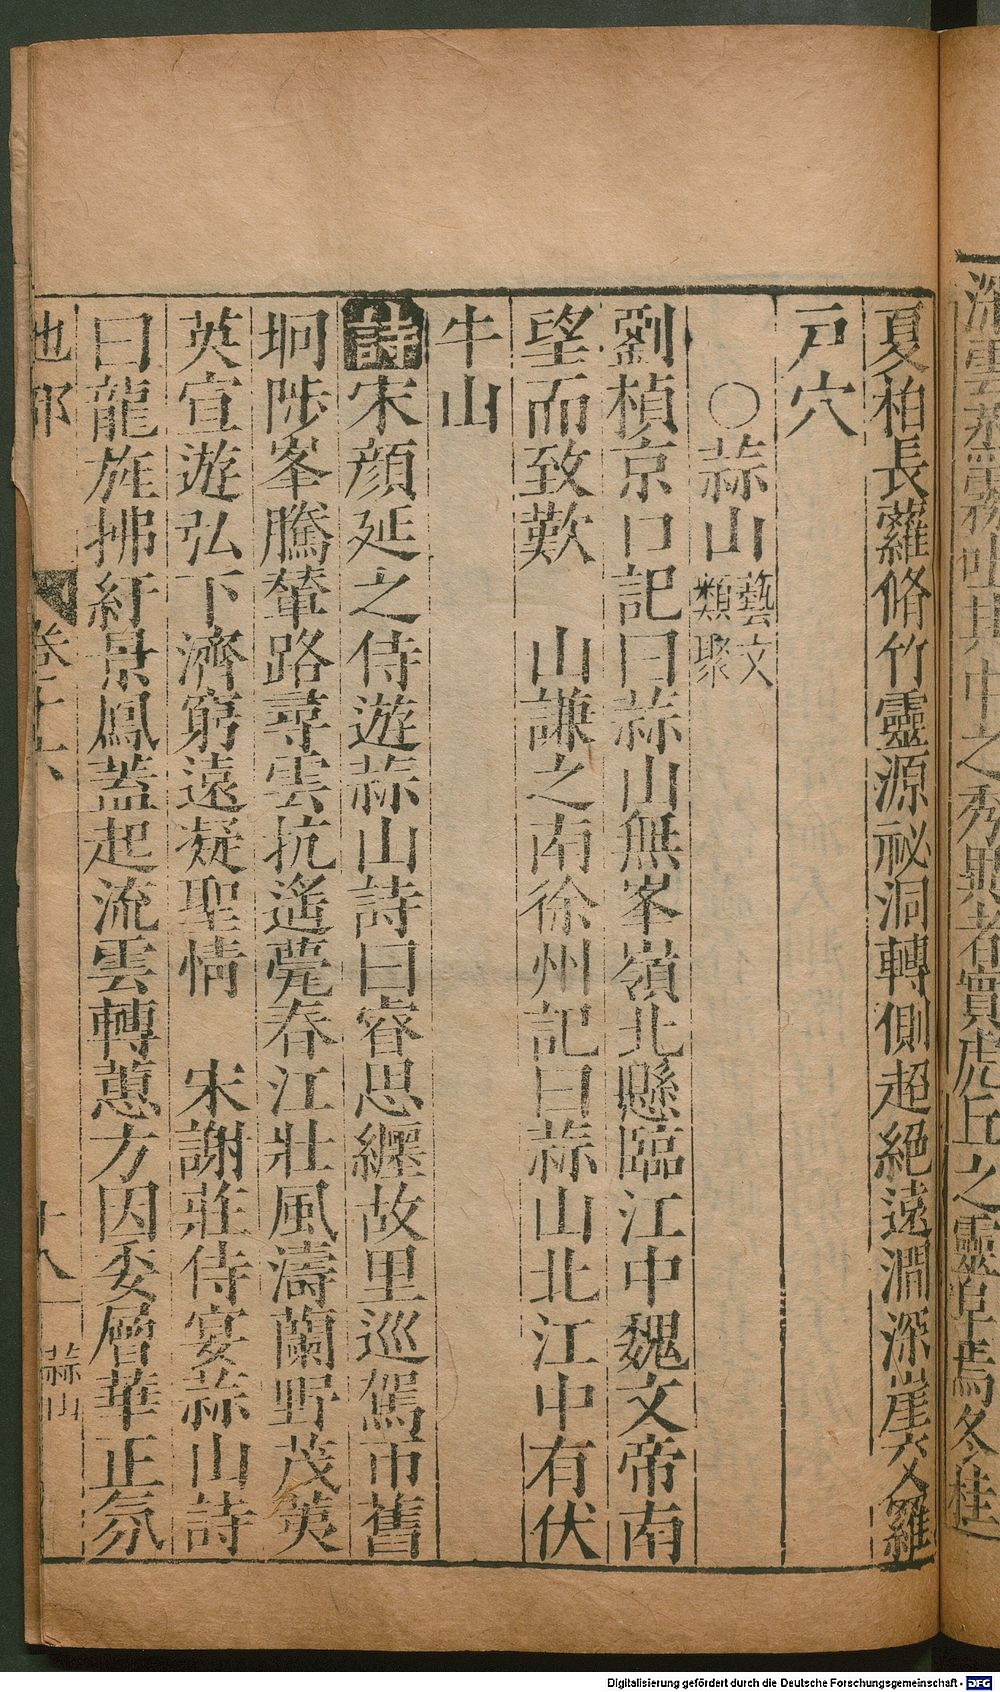 深雲蒸霧吐其中之秀異者實虎丘之靈阜焉冬桂
夏柏長蘿脩竹靈源祕洞轉側超絕遠澗深崖交羅
戸穴
○蒜山藝文類聚
劉楨京口記曰蒜山無峯嶺北懸臨江中魏文帝南
望而致歎　山謙之南徐州記曰蒜山北江中有伏
牛山
詩宋顔延之侍遊蒜山詩曰睿思纏故里巡駕帀舊
坰陟峯騰輦路尋雲抗遙甍春江壯風濤蘭野茂荑
英宣遊弘下濟窮遠凝聖情　宋謝莊侍宴蒜山詩
曰龍旌拂紆景鳳蓋起流雲轉蕙方因委層華正氛
地部　卷二十六　十八　蒜山
Digitalisierung gefördert durch die Deutsche Forschungsgemeinschaft - DFG